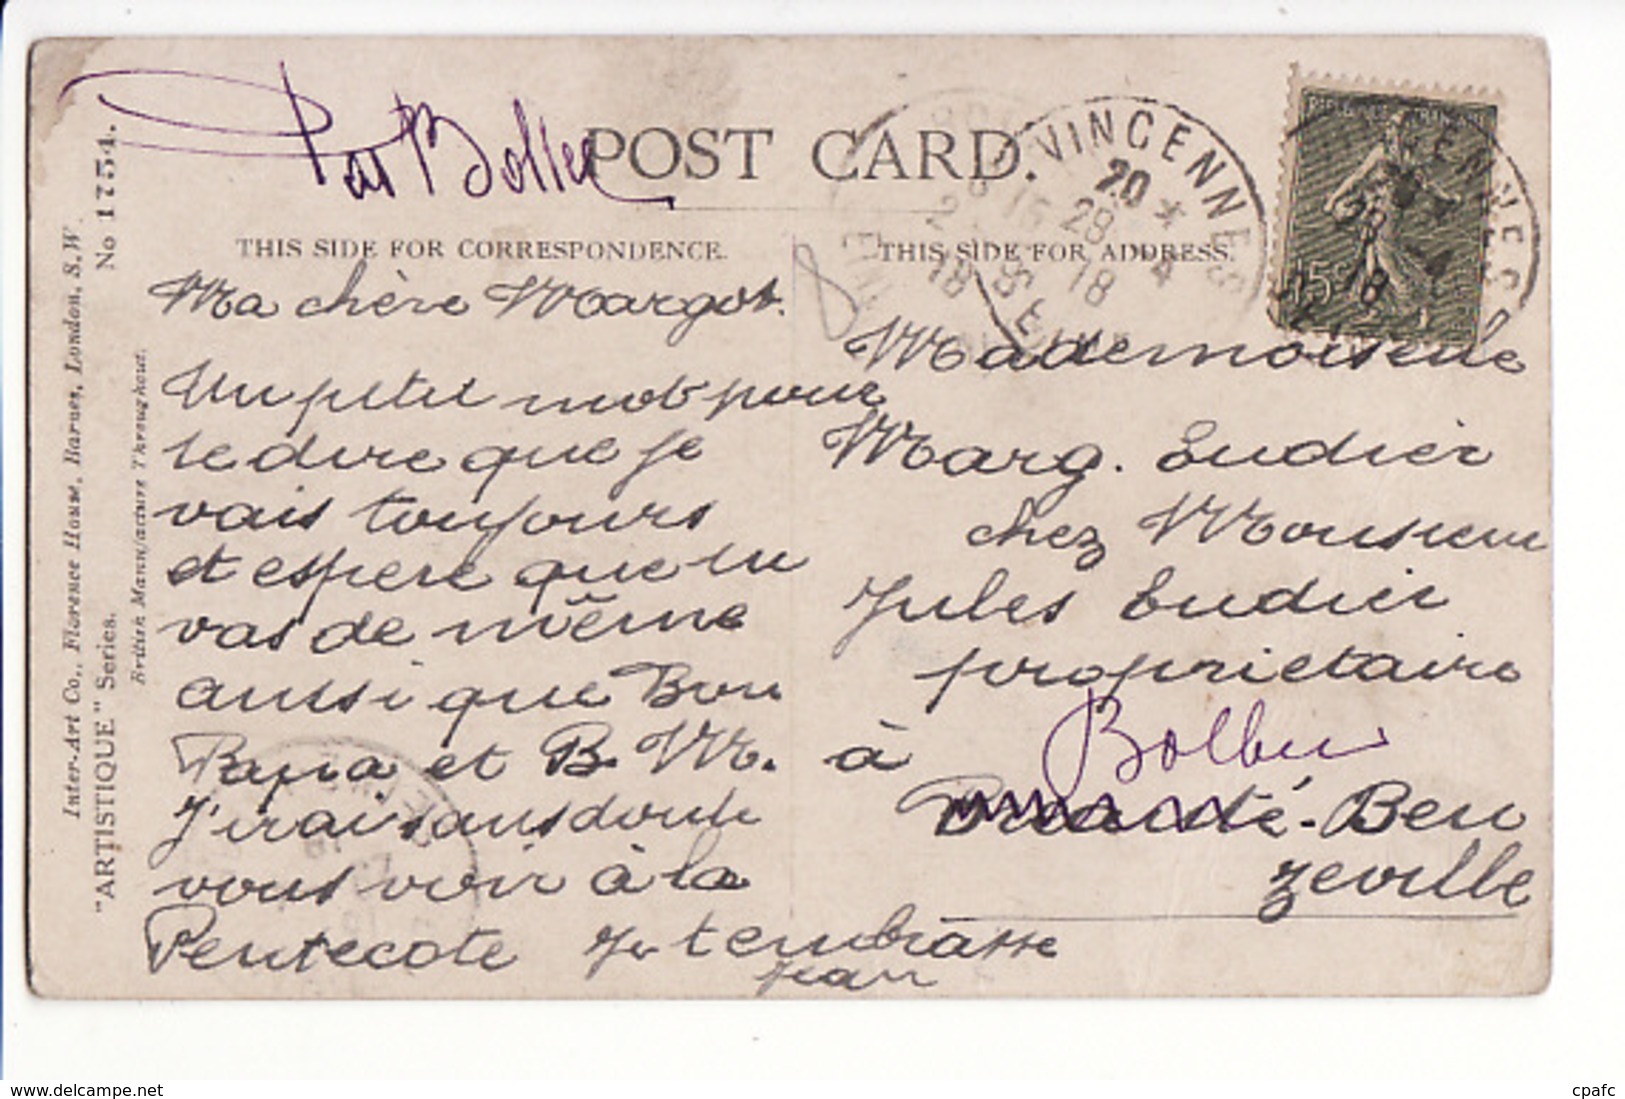 Par Bolbec
POST CARD.
THIS SIDE FOR CORRESPONDENCE.
THIS SIDE FOR ADDRESS.
VINCENNES
20 *
28 4 18
15c
8
Inter-Art Co., Florence House, Barnes, London, S.W.
No 1754.
"ARTISTIQUE" Series.
British Manufacture Throughout.
Ma chère Margot.
Un petit mot pour
te dire que je
vais toujours
et espère que tu
vas de même
ainsi que Bon
Papa et B. M.
J'irai sans doute
vous voir à la
Pentecote Je t'embrasse
Jean
Mademoiselle
Marg. Eudier
chez Monsieur
Jules Eudier
propriétaire
à Bolbec
Beu
zeville
delcampe.net
cpafc